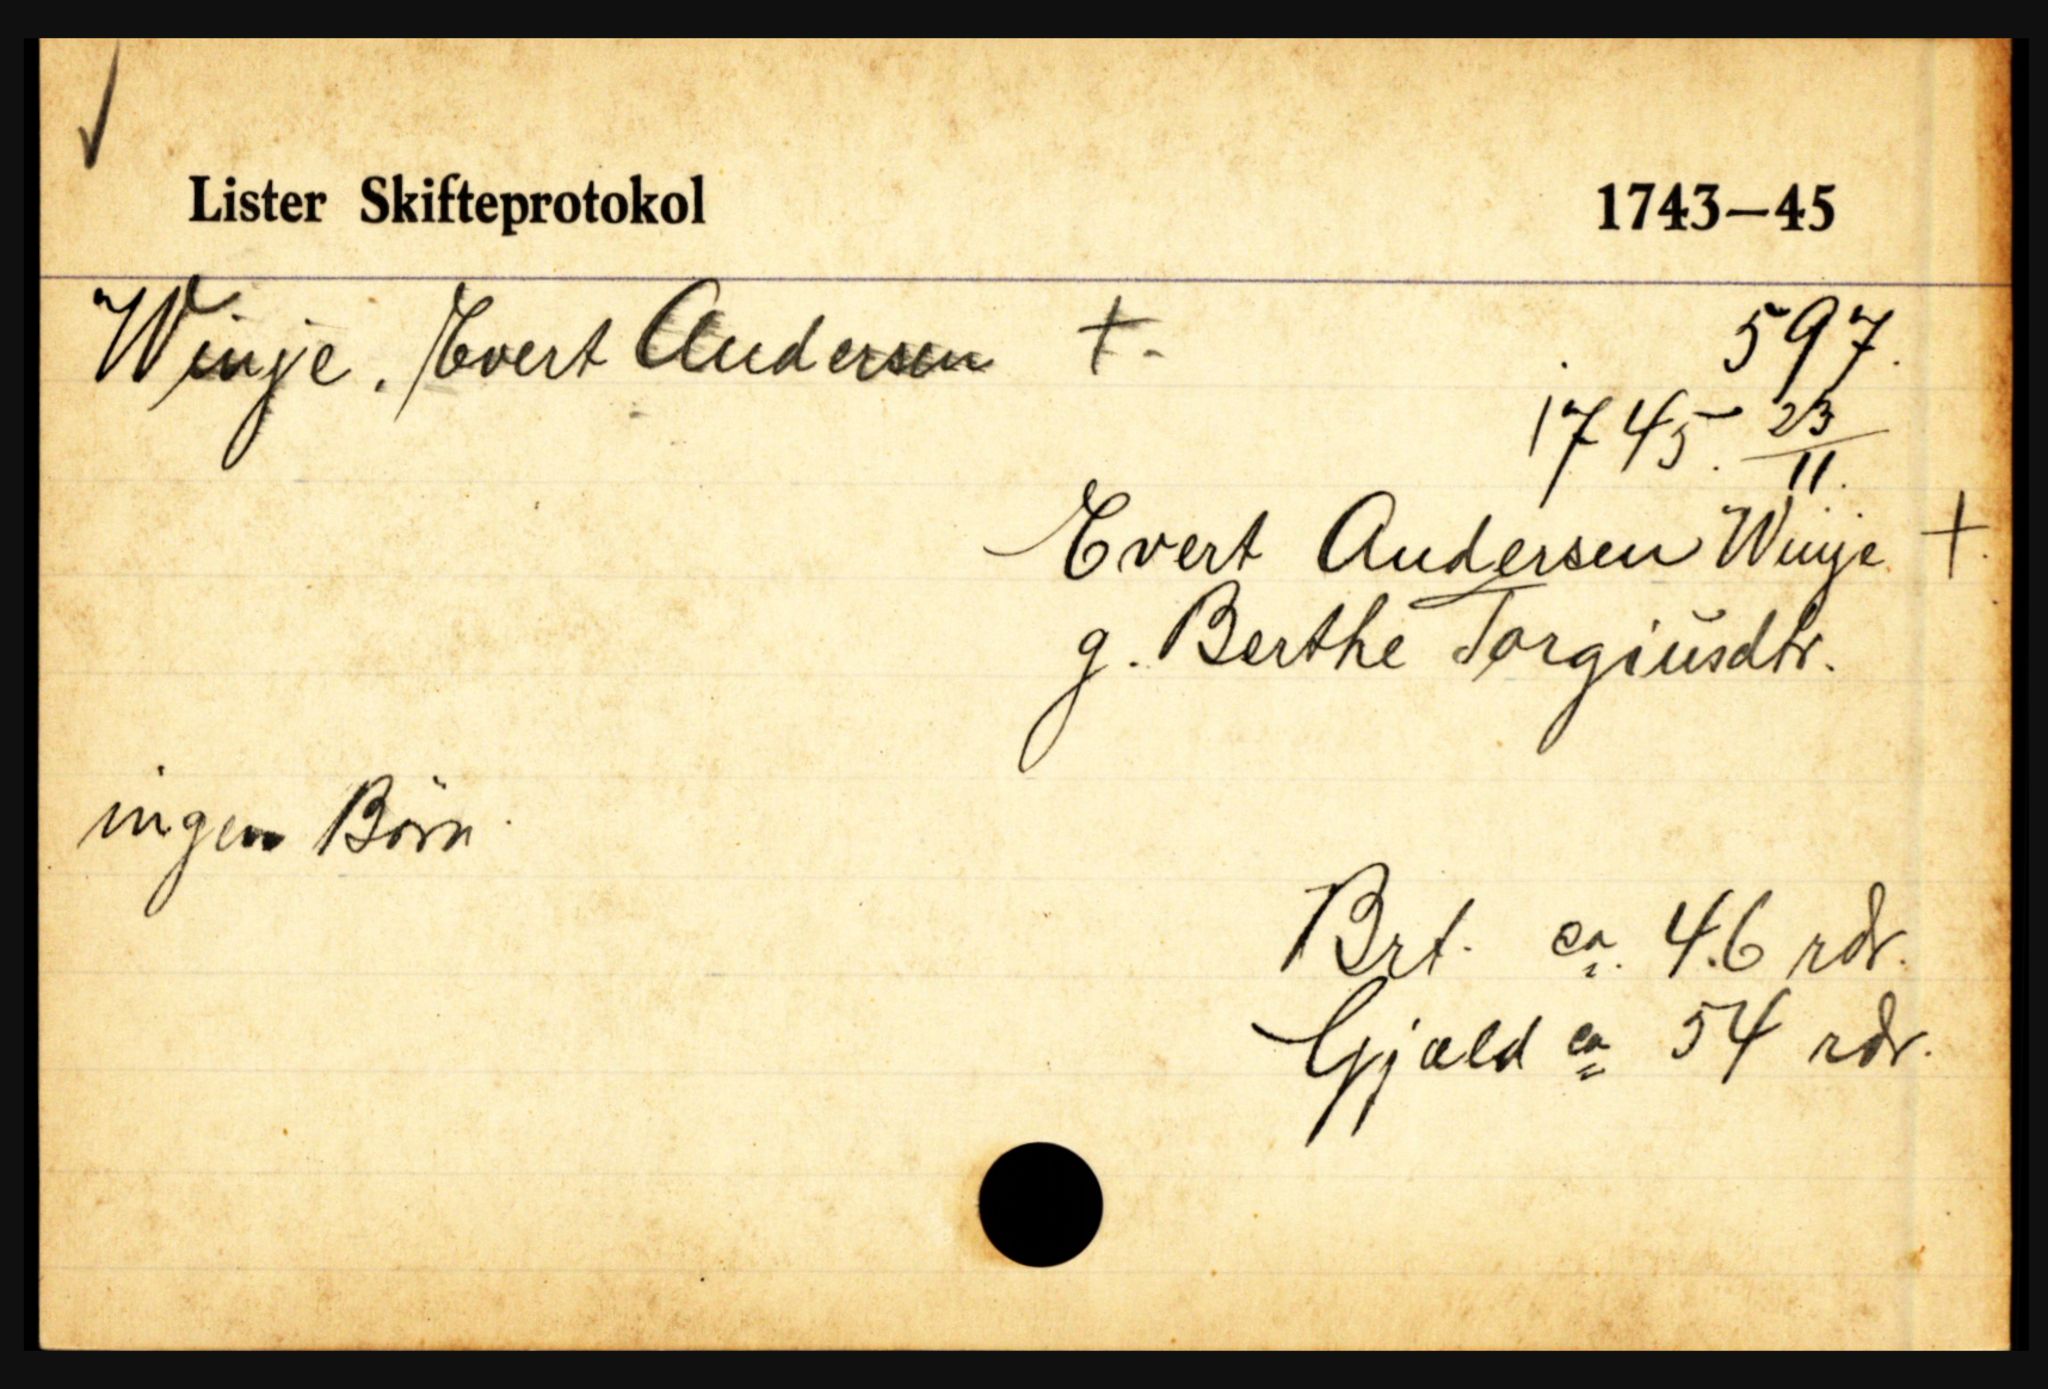 Lister Skifteprotokol 1743–45
Winje, Evert Andersen †. 597.
1745. 23/11.
Evert Andersen Winje †.
g. Berthe Torgiusdtr.
ingen Børn.
Brt. ca. 46 rdr.
Gjæld ca 54 rdr.